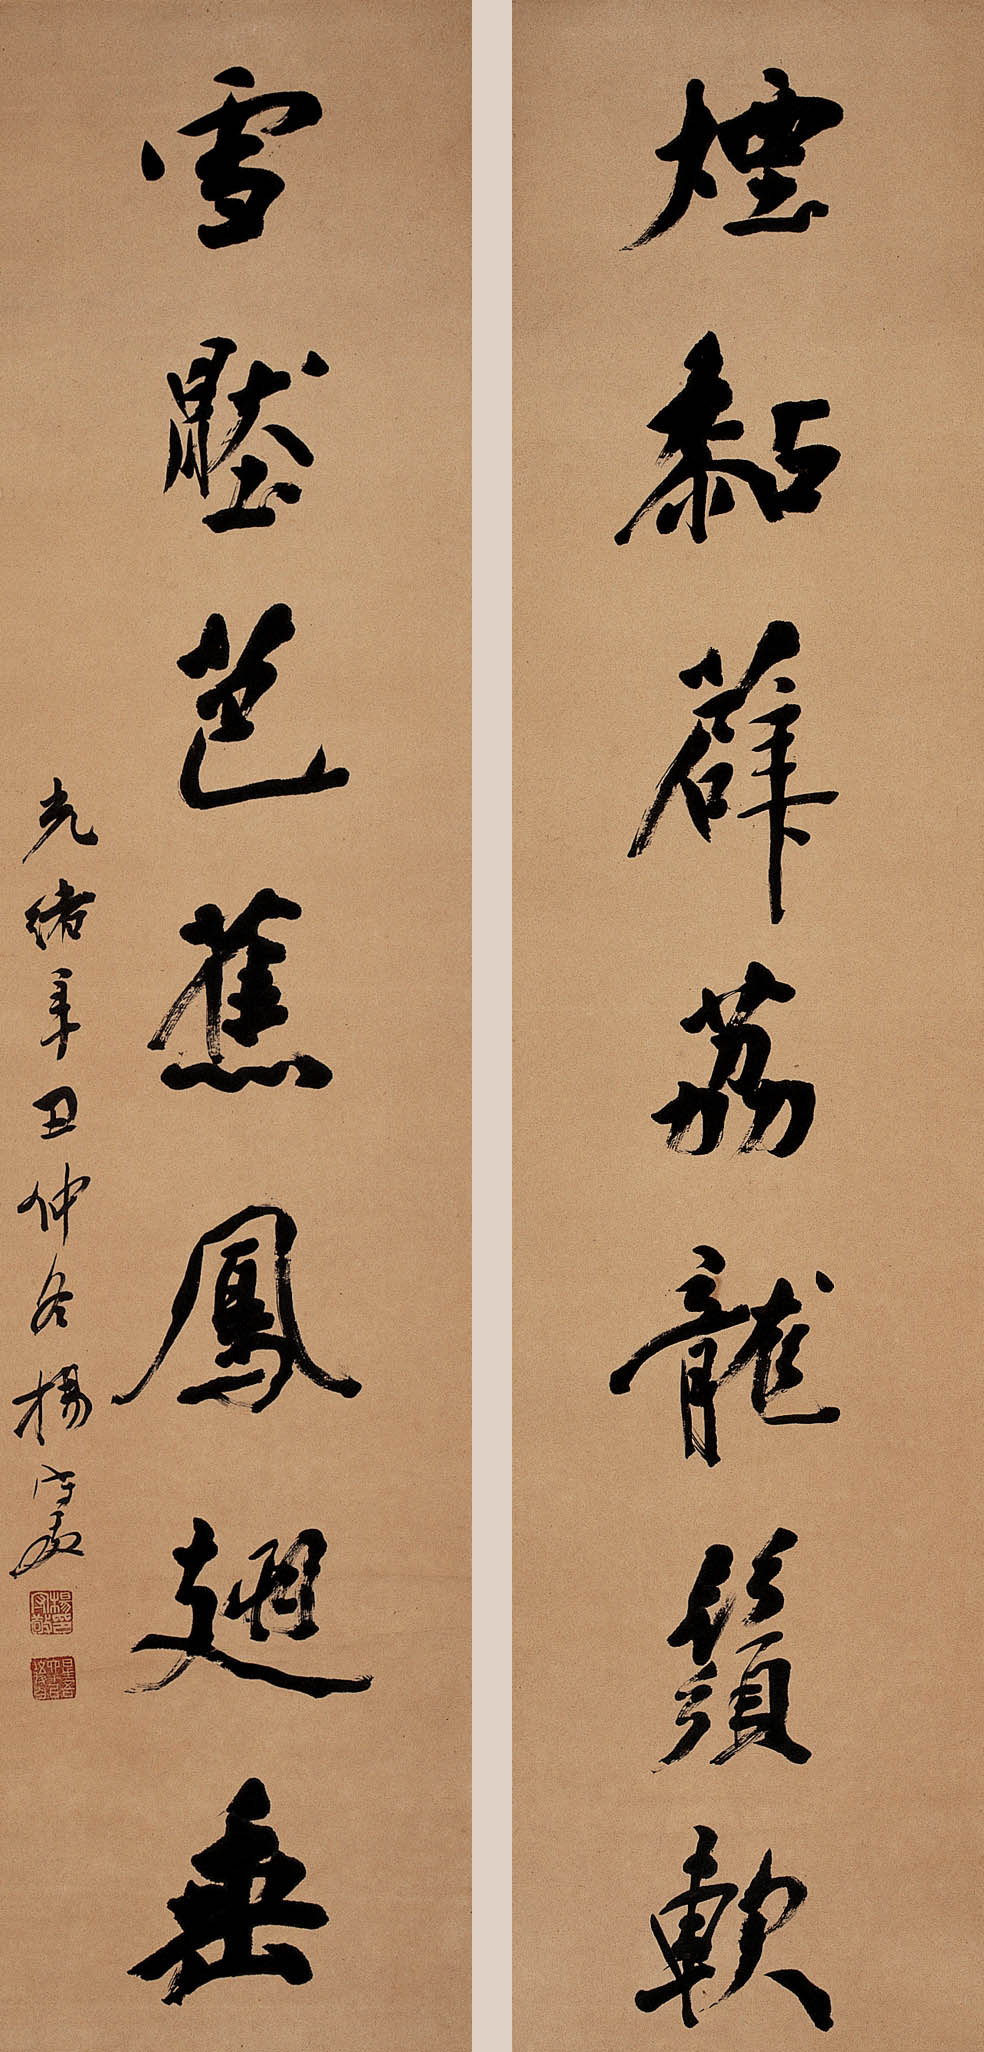 煙黏薜荔龍鬚軟
雪壓芭蕉鳳翅垂
光緒辛丑仲冬楊守敬
楊守敬印